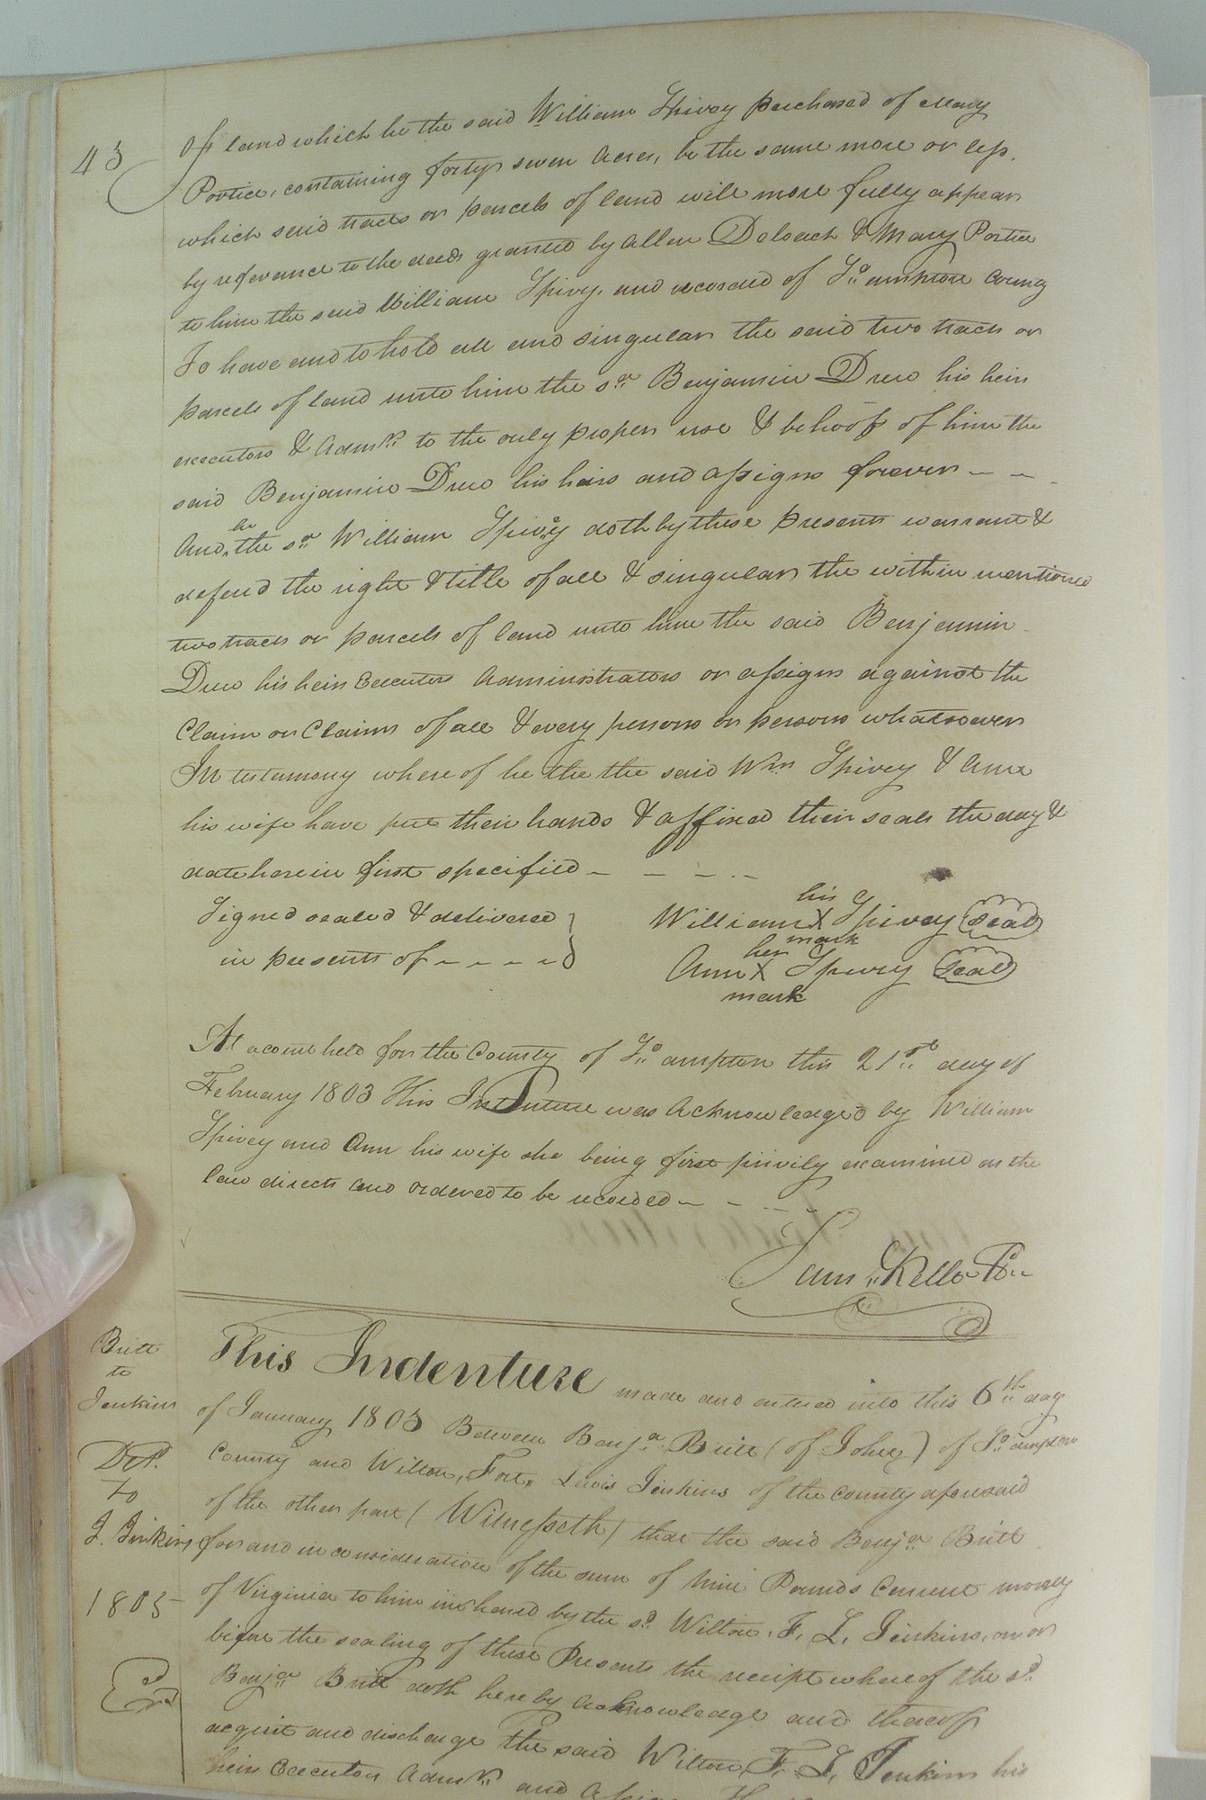 43
Of land which he the said William Spivey purchased of Mary
Portice, containing forty seven Acres, be the same more or less,
which said tracts or parcels of land will more fully appear
by referance to the deeds granted by Allen Deloach & Mary Portice
to him the said William Spivy, and recorded of So.ampton County
To have and to hold all and singular the said two tracts or
parcels of land unto him the sd. Benjamin Drew his heirs
executors & Admrs. to the only proper use & behoof of him the
said Benjamin Drew his heirs and assigns forever — —
And he the sd. William Spivey doth by these presents warrant &
defend the right & title of all & singular the within mentioned
two tracts or parcels of land unto him the said Benjamin
Drew his heirs Executors Administrators or assigns against the
Claim or Claims of all & every persons or persons whatsoever
In testamony where of he the the said Wm. Spivey & Ann
his wife have put their hands & affixed their seals the day &
date herein first specified — — — —
Signed sealed & delivered
in presents of — — — —
his
William X Spivey Seal
mark
her
Ann X Spivey Seal
mark
At a court held for the County of So.ampton this 21st. day of
February 1803 This Indenture was Acknowledged by William
Spivey and Ann his wife she being first privily examined as the
law directs and ordered to be recorded — —
Saml. Kello Co.
Britt
to
Jenkins
Dd.
To
J. Jenkins
1805
Exd
This Indenture made and entered into this 6th. day
of January 1803 Between Benja. Britt (of John) of So.ampton
County and Wilton, Fort, Lewis Jenkins of the County aforesaid
of the other part (Witnesseth) that the said Benja. Britt
for and in consideration of the sum of nine Pounds Current money
of Virginia to him in hand by the sd. Wilton, F, L, Jenkins, on or
before the sealing of these Presents the receipt whereof the sd.
Benja. Britt doth hereby acknowledge and thereof
acquit and discharge the said Wilton, F. L, Jenkins his
heirs Executors Admrs. and Assigns